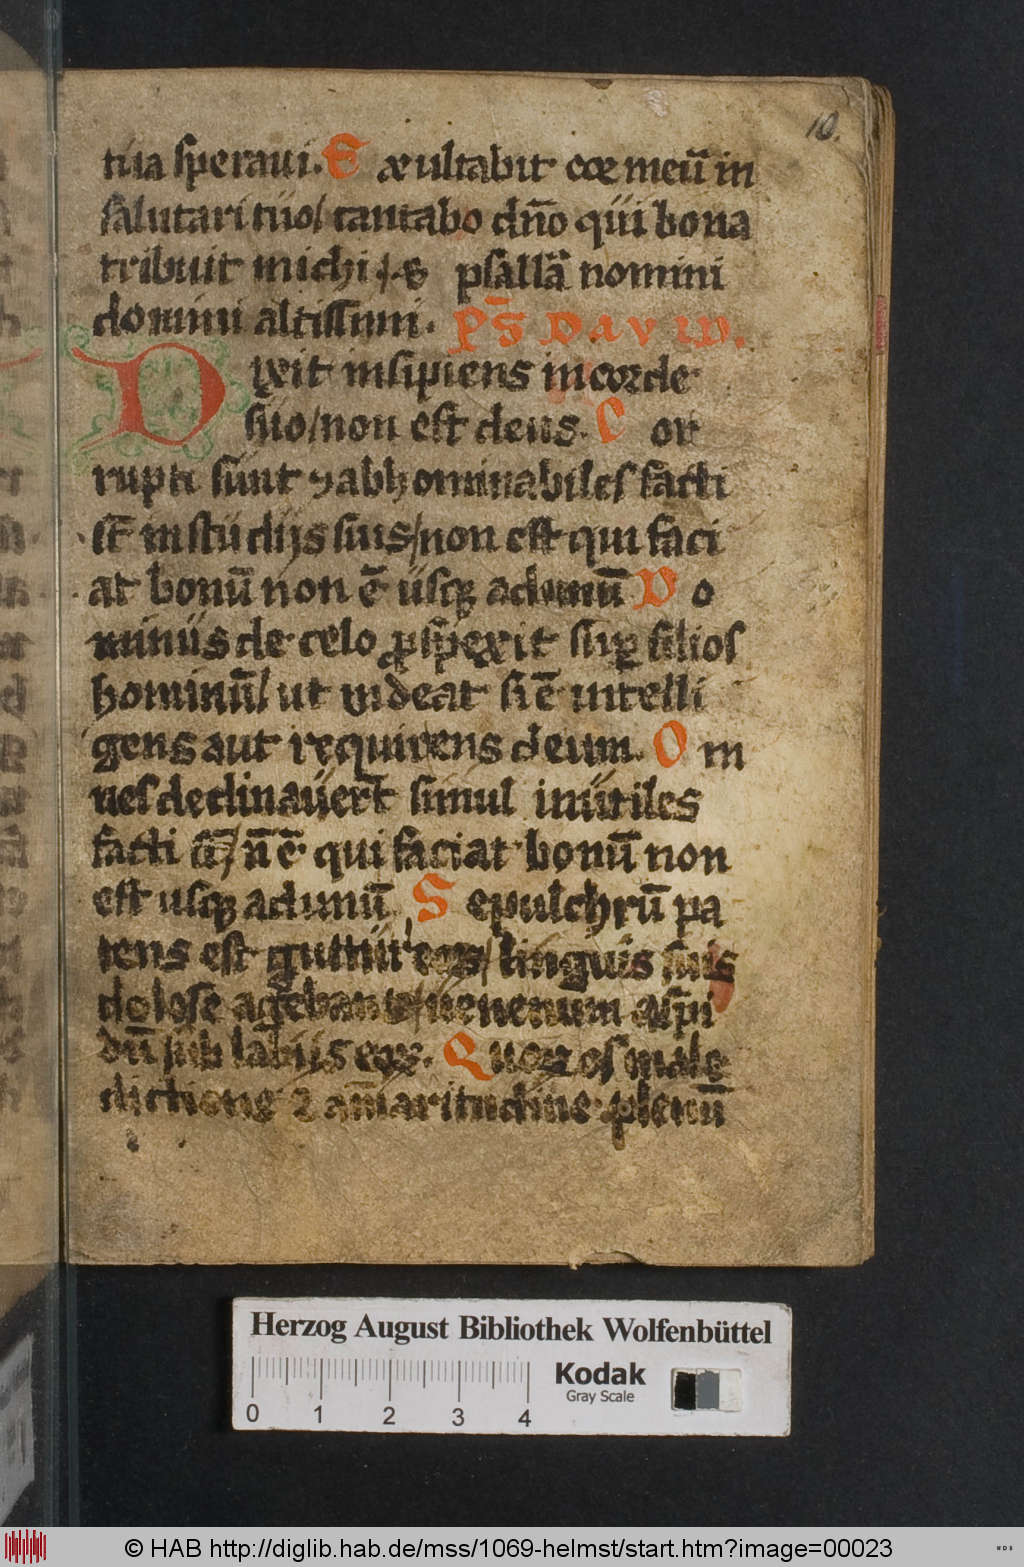 10.
tua speraui. E xultabit cor meū in
salutari tuo/ cantabo dn̄o qui bona
tribuit michi ⁊ psallā nomini
domini altissimi. P̄S DAVID.
Dixit insipiens in corde
suo/ non est deus. C or
rupti sunt ⁊ abhominabiles facti
st̄ in studijs suis/ non est qui faci
at bonū non ē usqꝫ ad unū D o
minus de celo ꝓspexit suꝑ filios
hominū/ ut uideat si ē intelli
gens aut requirens deum. O m
nes declinauert̄ simul inutiles
facti st̄/ n̄ ē qui faciat bonū non
est usqꝫ ad unū S epulchrū pa
tens est guttur eoꝝ/ linguis suis
dolose agebant/ uenenum asp̄i
dū sub labijs eoꝝ. Q uoꝝ os male
dictione ⁊ amaritudine plenū
Herzog August Bibliothek Wolfenbüttel
Kodak
Gray Scale
0 1 2 3 4
© HAB http://diglib.hab.de/mss/1069-helmst/start.htm?image=00023